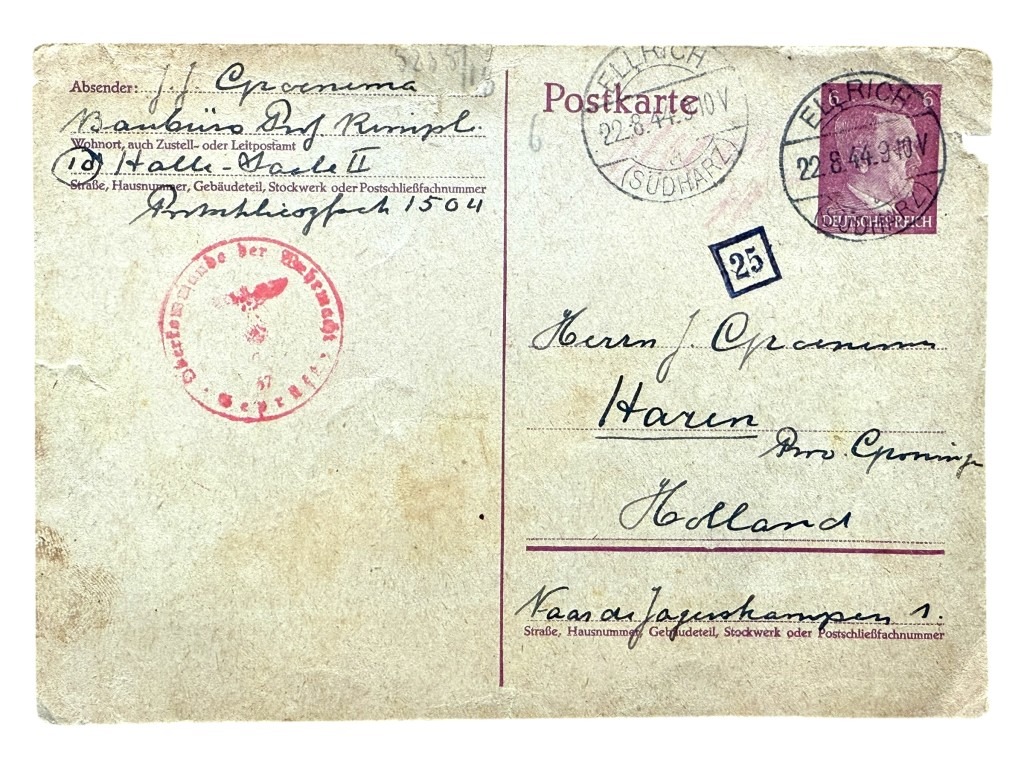 Absender: J. J. Groenema
Baubüro Prof Rimpl.
Wohnort, auch Zustell- oder Leitpostamt
Halle-Saale II
Straße, Hausnummer, Gebäudeteil, Stockwerk oder Postschließfachnummer
Postschliezfach 1504
Oberkommando der Wehrmacht
Geprüft
Postkarte
ELLRICH
22.8.44.9-10V
(SÜDHARZ)
6 6
DEUTSCHES REICH
ELLRICH
22.8.44.9-10V
(SÜDHARZ)
6
25
Herrn J. Groenema
Haren
Prov. Groninge
Holland
Jagerskampen 1.
Straße, Hausnummer, Gebäudeteil, Stockwerk oder Postschließfachnummer